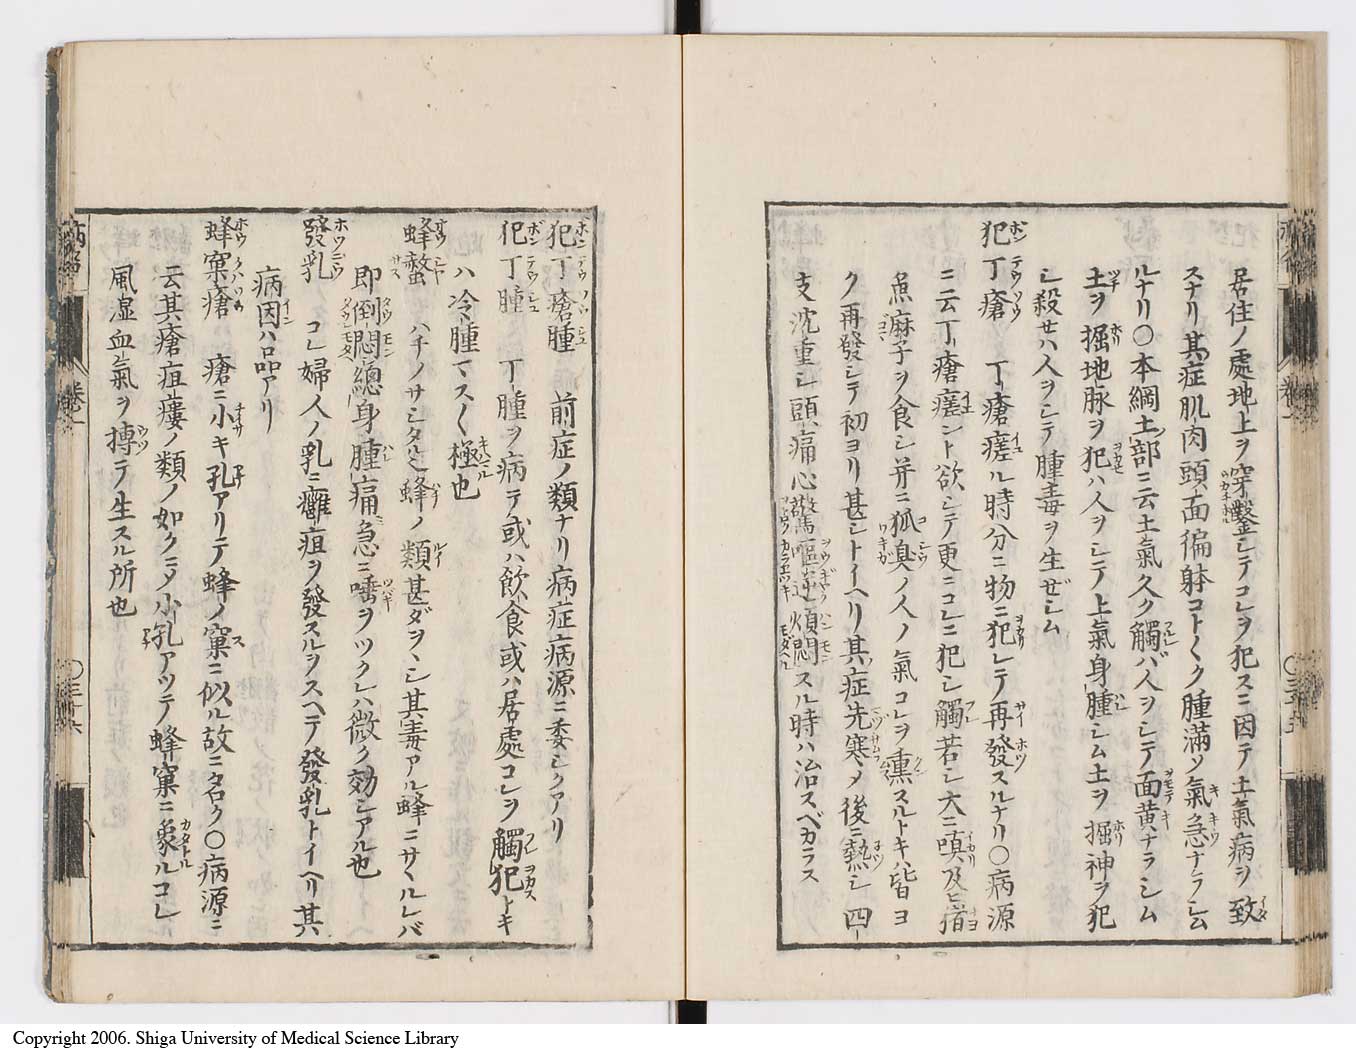 居住ノ處地上ヲ穿鑿シテコレヲ犯スニ因テ土氣病ヲ致
スナリ其症肌肉頭面偏躰コト〱ク腫滿ソ氣急ナラシム
ルナリ〇本綱土部ニ云土氣久ク觸バ人ヲシテ面黄ナラシム
土ヲ掘地脉ヲ犯ハ人ヲシテ上氣身腫シム土ヲ掘神ヲ犯
シ殺セハ人ヲシテ腫毒ヲ生ゼシム
犯丁瘡 丁瘡瘥ル時分ニ物ニ犯レテ再發スルナリ〇病源
ニ云丁瘡瘥ント欲シテ更ニコレニ犯シ觸若シ大ニ嗔及ヒ
魚麻子ヲ食シ并ニ狐臭ノ人ノ氣コレヲ熏スルトキハ皆ヨ
ク再發シテ初ヨリ甚シトイヘリ其症先寒メ後ニ熱シ四
支沈重シ頭痛心驚嘔逆煩悶スル時ハ治スベカラス
犯丁瘡腫 前症ノ類ナリ病症病源ニ委シクアリ
犯丁腫 丁腫ヲ病ラ或ハ飲食或ハ居處コレヲ觸犯トキ
ハ冷腫マス〱極也
蜂螫 ハチノサシタル也蜂ノ類甚ダヲヽシ其毒アル蜂ニサヽルレバ
即倒悶總身腫痛急ニ唾ヲツクレハ微ク効シアル也
發乳 コレ婦人ノ乳ニ癰疽ヲ發スルヲスヘテ發乳トイヘリ其
病因ハ品アリ
蜂窠瘡 瘡ニ小キ孔アリテ蜂ノ窠ニ似ル故ニ名ク〇病源ニ
云其瘡疽瘻ノ類ノ如クニメ小孔アツテ蜂窠ニ象ルコレ
風湿血氣ヲ摶テ生スル所也
Copyright 2006. Shiga University of Medical Science Library